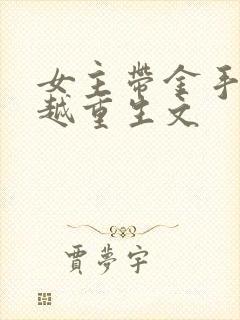 女主带金手
越重生文
贾梦宇